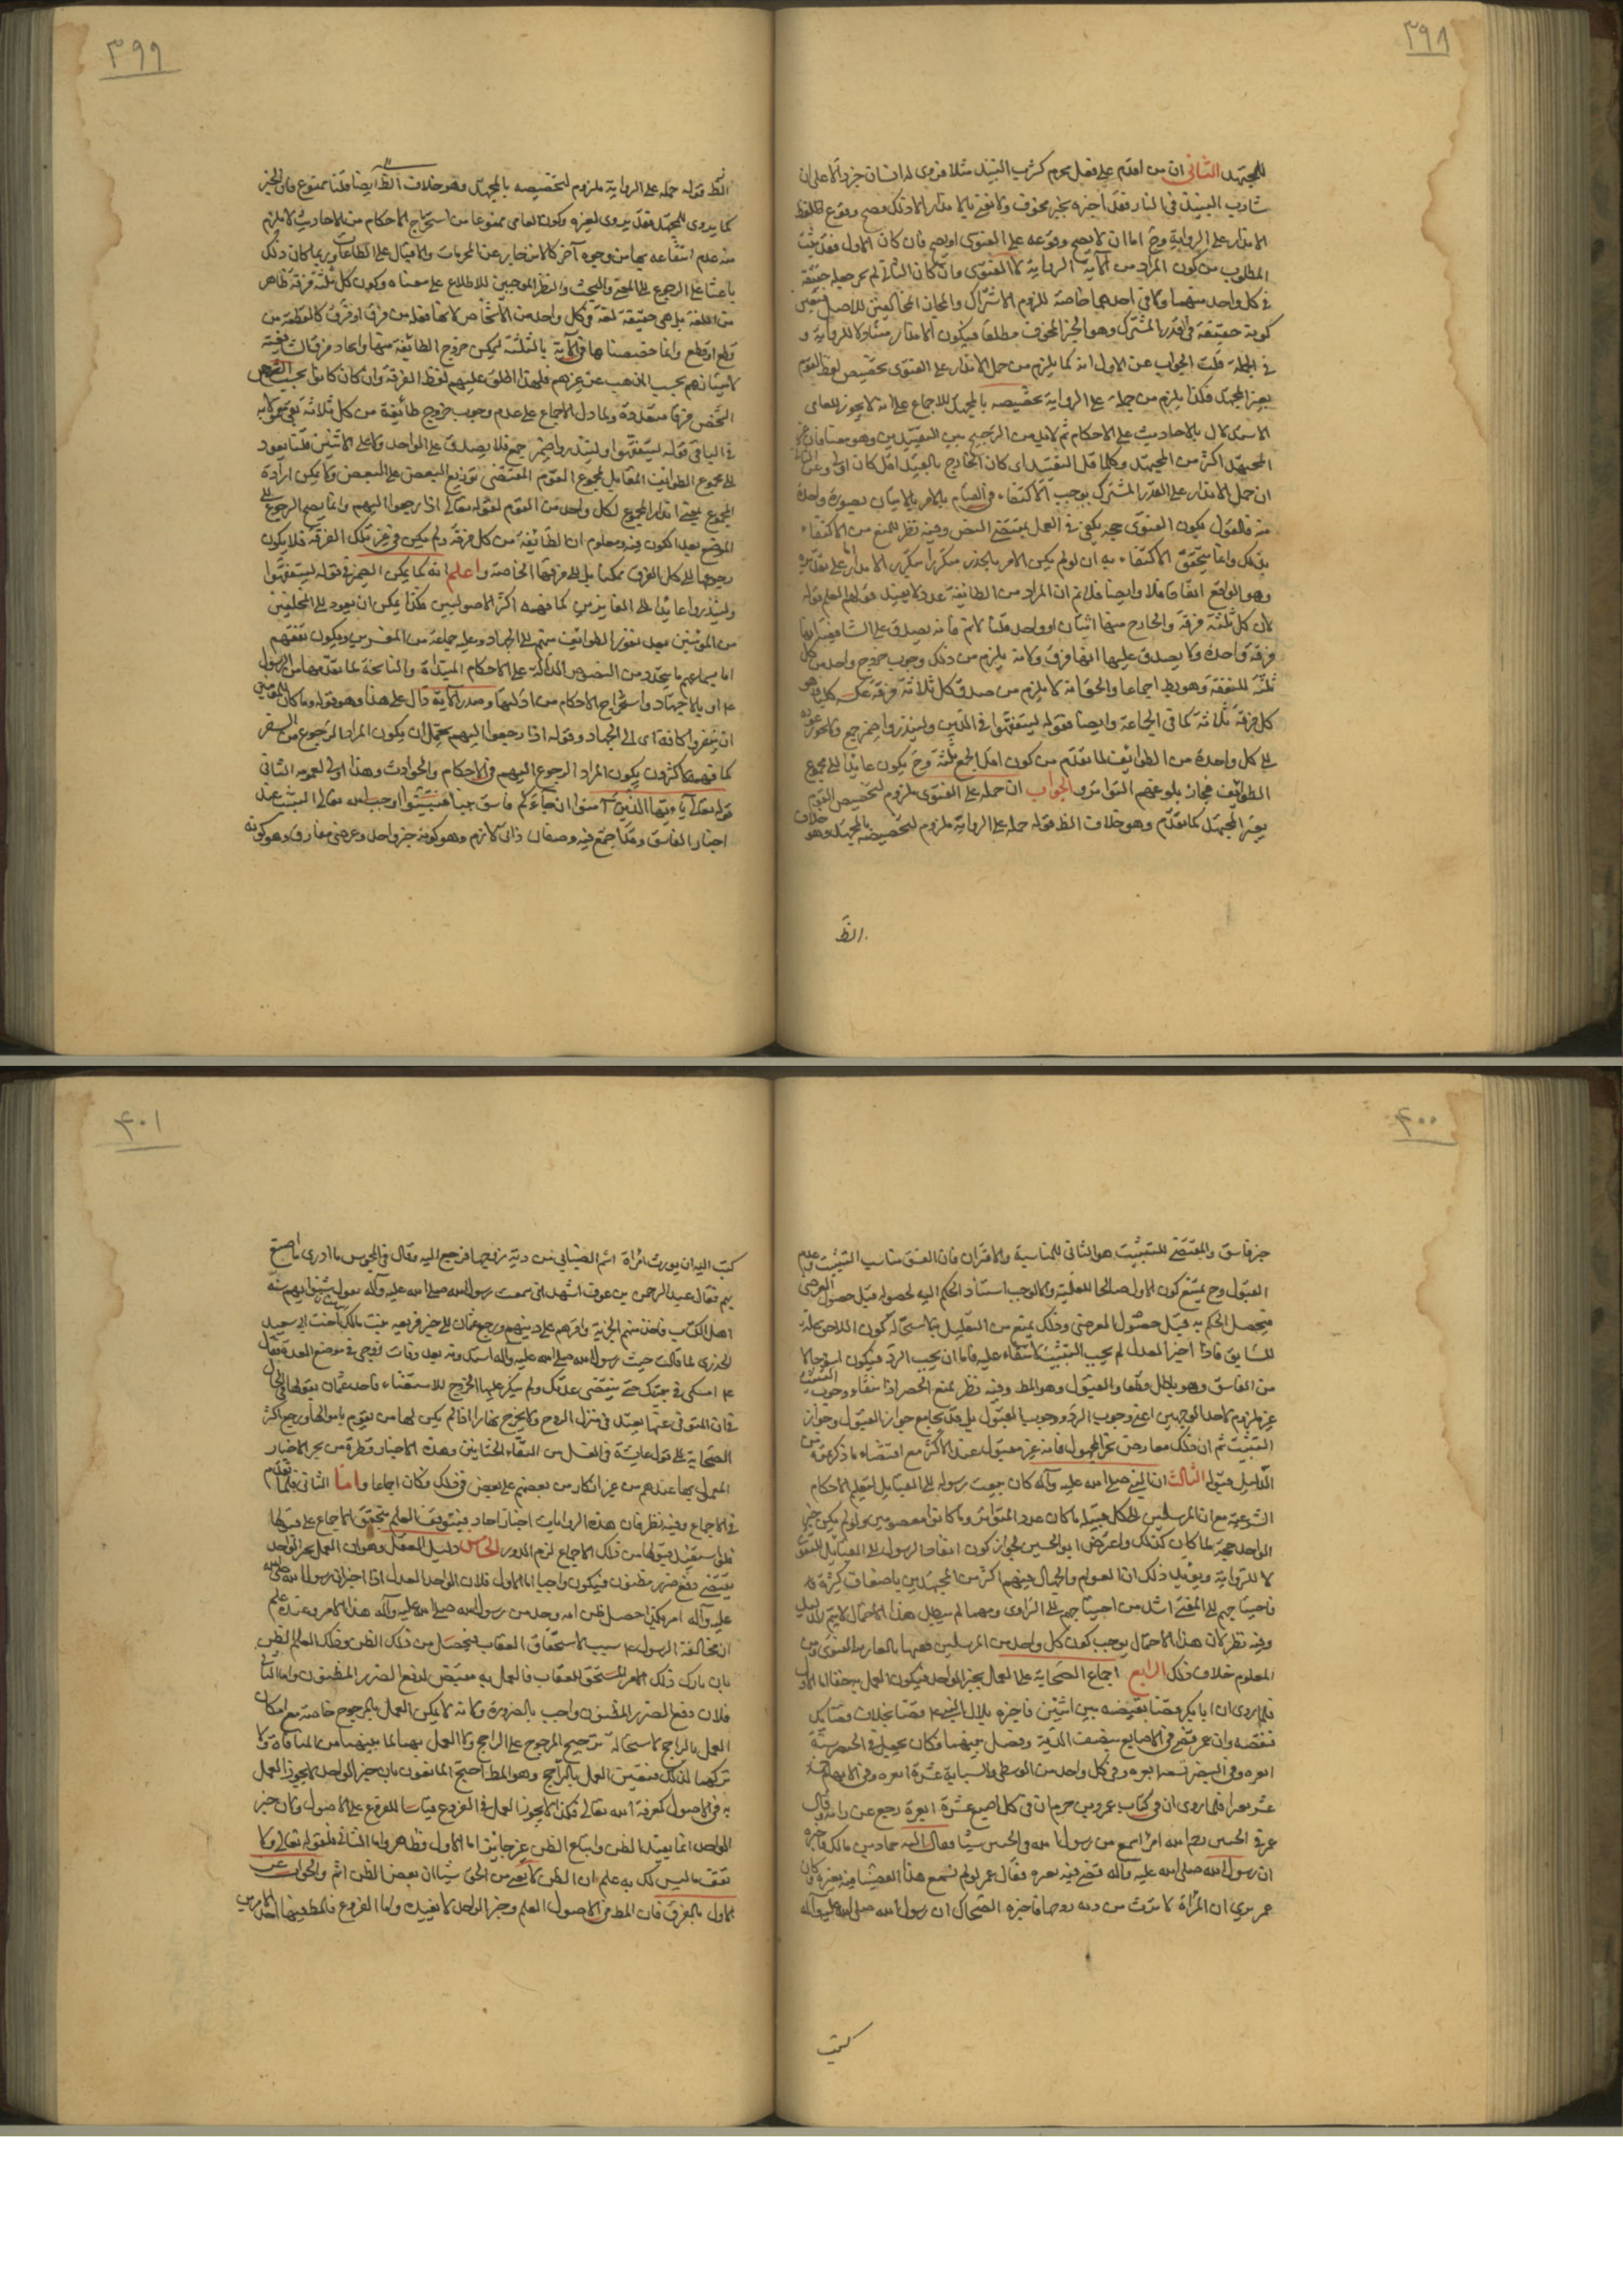 ٣٩٨
للمجتهد الثاني ان من اقدم على فعل محرم كشرب النبيذ مثلا فروى له انسان خبرا دالا على ان
شارب النبيذ في النار فقد اخبره بخبر مخوف ولا نعني بالانذار الا ذلك فصح وقوع لفظ
الانذار على الرواية وح اما ان لا يصح وقوعه على الفتوى او يصح فان كان الاول فقد ثبت
المطلوب من كون المراد من الاية الرواية لا الفتوى وان كان الثاني لم يجز جعله حقيقة
في كل واحد منهما ولا في احدهما خاصة للزوم الاشتراك والمجاز المخالفين للاصل فتعين
كونه حقيقة في القدر المشترك وهو الخبر المخوف مطلقا فيكون الانذار متناولا للرواية و
في الجملة قلت الجواب عن الاول انه كما يلزم من حمل الانذار على الفتوى تخصيص لفظ القوم
بغير المجتهد فكذا يلزم من حمله على الرواية تخصيصه بالمجتهد للاجماع على انه لا يجوز للعامي
الاستدلال بالاحاديث على الاحكام ثم لابد من الترجيح بين التقييدين وهو معنا فان غير
المجتهد اكثر من المجتهد وكلما قل التقييد اى كان الخارج بالقيد اقل كان اولى وعن الثاني
ان حمل الانذار على القدر المشترك يوجب الاكتفاء في القيام بالامر بالاتيان بصورة واحدة
منه فالقول بكون الفتوى حجة يكفي في العمل بمقتضى النص وفيه نظر للمنع من الاكتفاء
بذلك وانما يتحقق الاكتفاء به ان لو لم يكن الامر بالحذر متكررا بتكرر الانذار على تقديره
وهو الواقع اتفاقا فلا وايضا فلا نم ان المراد من الطائفة عدد لا يفيد قولهم العلم قوله
لان كل ثلثة فرقة والخارج منها اثنان او واحد قلنا لا نم فانه يصدق على الشافعية انها
فرقة واحدة ولا يصدق عليها انها فرق ولانه يلزم من ذلك وجوب خروج واحد من كل
ثلثة للتفقه وهو بط اجماعا والحق انه لا يلزم من صدق كل ثلاثة فرقة عكسه كليا وهو
كل فرقة ثلاثة كما في الجماعة وايضا فقوله ليتفقهوا في الدين ولينذروا ضمير جمع ولا يجوز عوده
الى كل واحدة من الطوائف لما تقدم من كون اقل الجمع ثلثة وح يكون عائدا الى مجموع
الطوائف فجاز بلوغهم التواتر والجواب ان حمله على الفتوى ملزوم لتخصيص القوم
بغير المجتهد كما تقدم وهو خلاف الظ قوله حمله على الرواية ملزوم لتخصيصه بالمجتهد وهو خلاف
الظ
٣٩٩
الظ قوله حمله على الرواية ملزوم لتخصيصه بالمجتهد وهو خلاف الظ ايضا قلنا ممنوع فان الخبر
كما يروى للمجتهد فقد يروى لغيره وكون العامي ممنوعا من استخراج الاحكام من الاحاديث لا يلزم
منه عدم انتفاعه بها من وجوه آخر كالانزجار عن المحرمات والاقبال على الطاعات وربما كان ذلك
باعثا على الرجوع الى المفتي والبحث والنظر الموجبين للاطلاع على معناه وكون كل ثلثة فرقة ظاهر
من اللغة بل هي حقيقة لغة في كل واحد من الاشخاص لانها فعلة من فرق او فرق كالقطعة من
قطع او قطع وانما خصصناها في الآية بالثلثة ليمكن خروج الطائفة منها واتحاد فرق الشافعية
لامتيازهم بحسب المذهب عن غيرهم فلهذا اطلق عليهم لفظ الفرقة وان كان كانوا بحسب الشخص
الشخص فرقا متعددة ولما دل الاجماع على عدم وجوب خروج طائفة من كل ثلاثة بقي معمولا به
في الباقي قوله ليتفقهوا ولينذروا ضمير جمع فلا يصدق على الواحد ولا على الاثنين قلنا يعود
الى مجموع الطوائف المقابل لمجموع القوم المقتضى توزيع البعض على البعض ولا يمكن ارادة
المجموع بمعنى انذار المجموع لكل واحد من القوم لقوله تعالى اذا رجعوا اليهم وانما يصح الرجوع الى
الموضع بعد الكون فيه ومعلوم ان الطائفة من كل فرقة ولم يكن في غير تلك الفرقة فلا يكون
رجوعها الى كل الفرق ممكنا بل الى فرقتها الخاصة واعلم انه كما يمكن الضمير في قوله ليتفقهوا
ولينذروا عائدا الى النافرين كما فهمه اكثر الاصوليين هكذا يمكن ان يعود الى المتخلفين
من المؤمنين بعد نفور الطوائف منهم الى الجهاد وبقاء جماعة من المؤمنين ويكون تفقههم
اما بسماعهم ما يتجدد من النصوص الدالة على الاحكام المبتداة والناسخة لما تقدمها من الرسول
ع او بالاجتهاد واستخراج الاحكام من ادلتها وصدر الآية دال على هذا وهو قوله وما كان المؤمنون
ان ينفروا كافة اى الى الجهاد وقوله اذا رجعوا اليهم يحتمل ان يكون المراد الرجوع من السفر
كما فهمه الاكثرون يكون المراد الرجوع اليهم في الاحكام والحوادث وهذا اولى لعمومه الثاني
قوله تعالى يا ايها الذين آمنوا ان جاءكم فاسق بنبا فتبينوا اوجب الله تعالى التثبت عند
اخبار الفاسق وقد اجتمع فيه وصفان ذاتي لازم وهو كونه خبر واحد وعرضي مفارق وهو كونه
۴۰۰
خبر فاسق والمقتضى للتثبت هو الثاني للمناسبة والاقتران فان الفسق مناسب التثبت وعدم
القبول وح يمتنع كون الاول صالحا للعلية والا لوجب استناد الحكم اليه لحصوله قبل حصول العرضي
فيحصل الحكم به قبل حصول العرضي وذلك يمنع من التعليل به لاستحالة كون اللاحق علة
للسابق فاذا اخبر العدل لم يجب التثبت لانتفاء علته فاما ان يجب الرد فيكون اسوء حالا
من الفاسق وهو باطل قطعا او القبول وهو المط وفيه نظر بمنع الحصر اذ انتفاء وجوب التثبت
غير ملزوم لاحد الوجهين اعني وجوب الرد ووجوب القبول بل قد يجامع جواز القبول وجواز
التثبت ثم ان ذلك معارض بخبر المجهول فانه غير مقبول عند الاكثر مع اقتضاء ما ذكرتموه من
الدليل قبوله الثالث ان النبي صلى الله عليه وآله كان يبعث رسوله الى القبايل لتعليم الاحكام
الشرعية مع ان المرسلين لكل قبيلة ما كان عدد التواتر وما كانوا معصومين ولو لم يكن خبر
الواحد حجة لما كان كذلك واعترض ابو الحسين بجواز كون انفاذ الرسول الى القبايل للفتوى
لا للرواية ويؤيد ذلك ان العوام والجهال حينهم اكثر من المجتهدين باضعاف كثيرة
فاحتياجهم الى المفتي اشد من احتياجهم الى الراوى ومهما لم يبطل هذا الاحتمال لا يتم الدليل
وفيه نظر لان هذا الاحتمال يوجب كون كل واحد من المرسلين فقيها بالغا رتبة الفتوى ومن
المعلوم خلاف ذلك الرابع اجماع الصحابة على العمل بخبر الواحد فيكون العمل به حقا اما الاول
فلما روى ان ابا بكر قضا بقضية بين اثنين فاخبره بلال ان النبي ع قضا بخلاف قضائك
فنقضه وان عمر قضى في الاصابع بنصف الدية وفصل بينهما وكان يجعل في الخنصر ستة
ابعرة وفي البنصر تسعة ابعرة وفي كل واحد من الوسطى والسبابة عشرة ابعرة وفي الابهام خمسة
عشر بعيرا فلما روى ان في كتاب عمرو بن حزم ان في كل اصبع عشرة ابعرة رجع عن رايه وقال
عمر في الجنين رحم الله امرءا سمع من رسول الله في الجنين شيئا فقال اليه حماد بن مالك فاخبره
ان رسول الله صلى الله عليه وآله قضى فيه بغرة فقال عمر لو لم نسمع هذا لقضينا فيه بغيره وكان
عمر يرى ان المرأة لا ترث من دية زوجها فاخبره الضحاك ان رسول الله صلى الله عليه وآله
كتب
۴۰۱
كتب اليه ان يورث امرأة اشيم الضبابي من دية زوجها فرجع اليه وقال في المجوس ما ادرى ما اصنع
بهم فقال عبد الرحمن بن عوف اشهد اني سمعت رسول الله صلى الله عليه وآله يقول سنوا بهم سنة
اهل الكتاب فاخذ منهم الجزية واقرهم على دينهم ورجع عثمان الى خبر فريعة بنت مالك اخت ابي سعيد
الخدرى لما قالت جئت رسول الله صلى الله عليه وآله استاذنه بعد وفات زوجي في موضع العدة فقال
ع امسكى في بيتك حتى ينقضى عدتك ولم ينكر عليها الخروج للاستفتاء فاخذ عثمان بقولها في الحال
في ان المتوفى عنها يعتد في منزل الزوج ولا يخرج نهارا اذا لم يكن لها من يقوم باحوالها ورجع اكثر
الصحابة الى قول عايشة في الغسل من التقاء الختانين وهذه الاخبار قطرة من بحر الاخبار
المعمول بها عندهم من غير انكار من بعضهم على بعض في ذلك فكان اجماعا واما الثاني فلما تقدم
في الاجماع وفيه نظر فان هذه الروايات اخبار احاد فيتوقف العلم بتحقق الاجماع على قبولها
فلو استفيد قبولها من ذلك الاجماع لزم الدور الخامس دليل العقل وهو ان العمل بخبر الواحد
يقتضى دفع ضرر مظنون فيكون واجبا اما الاول فلان الواحد العدل اذا اخبر ان رسول الله صلى الله
عليه وآله امر بكذا حصل ظن انه وجد من رسول الله صلى الله عليه وآله هذا الامر وعنده علم
ان مخالفة الرسول ع سبب لاستحقاق العقاب فيحصل من ذلك الظن وذلك العلم الظن
بان تارك ذلك الامر المستحق للعقاب فالعمل به مقتض لدفع الضرر المظنون واما الثاني
فلان دفع الضرر المظنون واجب بالضرورة ولانه لا يمكن العمل بالمرجوح خاصة مع امكان
العمل بالراجح لاستحالة ترجيح المرجوح على الراجح ولا العمل بهما لما بينهما من المنافاة ولا
تركهما لذلك فتعين العمل بالراجح وهو المط احتج المانعون بان خبر الواحد لا يجوز العمل
به في الاصول كمعرفة الله تعالى فكذا لا يجوز العمل في الفروع قياسا للفروع على الاصول ولان خبر
الواحد انما يفيد الظن واتباع الظن غير جايز اما الاول فظاهر واما الثاني فلقوله تعالى ولا
تقف ما ليس لك به علم ان الظن لا يغنى من الحق شيئا ان بعض الظن اثم والجواب عن
الاول بالفرق فان المط في الاصول العلم وخبر الواحد لا يفيده واما الفروع فالمط فيها احد الامرين